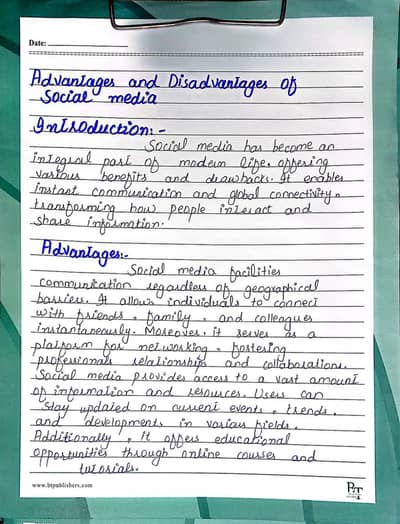 Date:
Advantages and Disadvantages of
Social media
Introduction:-
Social media has become an
integral part of modern life, offering
various benefits and drawbacks. It enables
instant communication and global connectivity,
transforming how people interact and
share information.
Advantages:-
Social media facilities
communication regardless of geographical
barriers. It allows individuals to connect
with friends, family, and colleagues
instantaneously. Moreover, it serves as a
platform for networking, fostering
professionals relationship and collaborations.
Social media provides access to a vast amount
of information and resources. Users can
stay updated on current events, trends,
and developments in various fields.
Additionally, it offers educational
opportunities through online courses and
tutorials.
www.btpublishers.com
BT